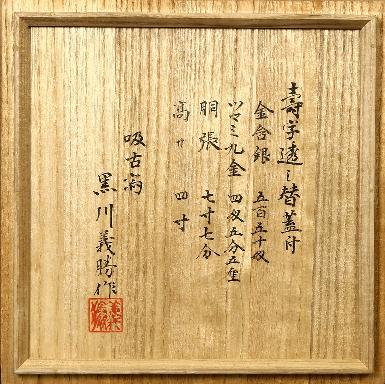 壽字透シ替蓋付
金舍銀　五百五十匁
ツマミ九金　四匁五分五厘
胴張　七寸七分
高サ　四寸
吸古斎
黒川義勝作